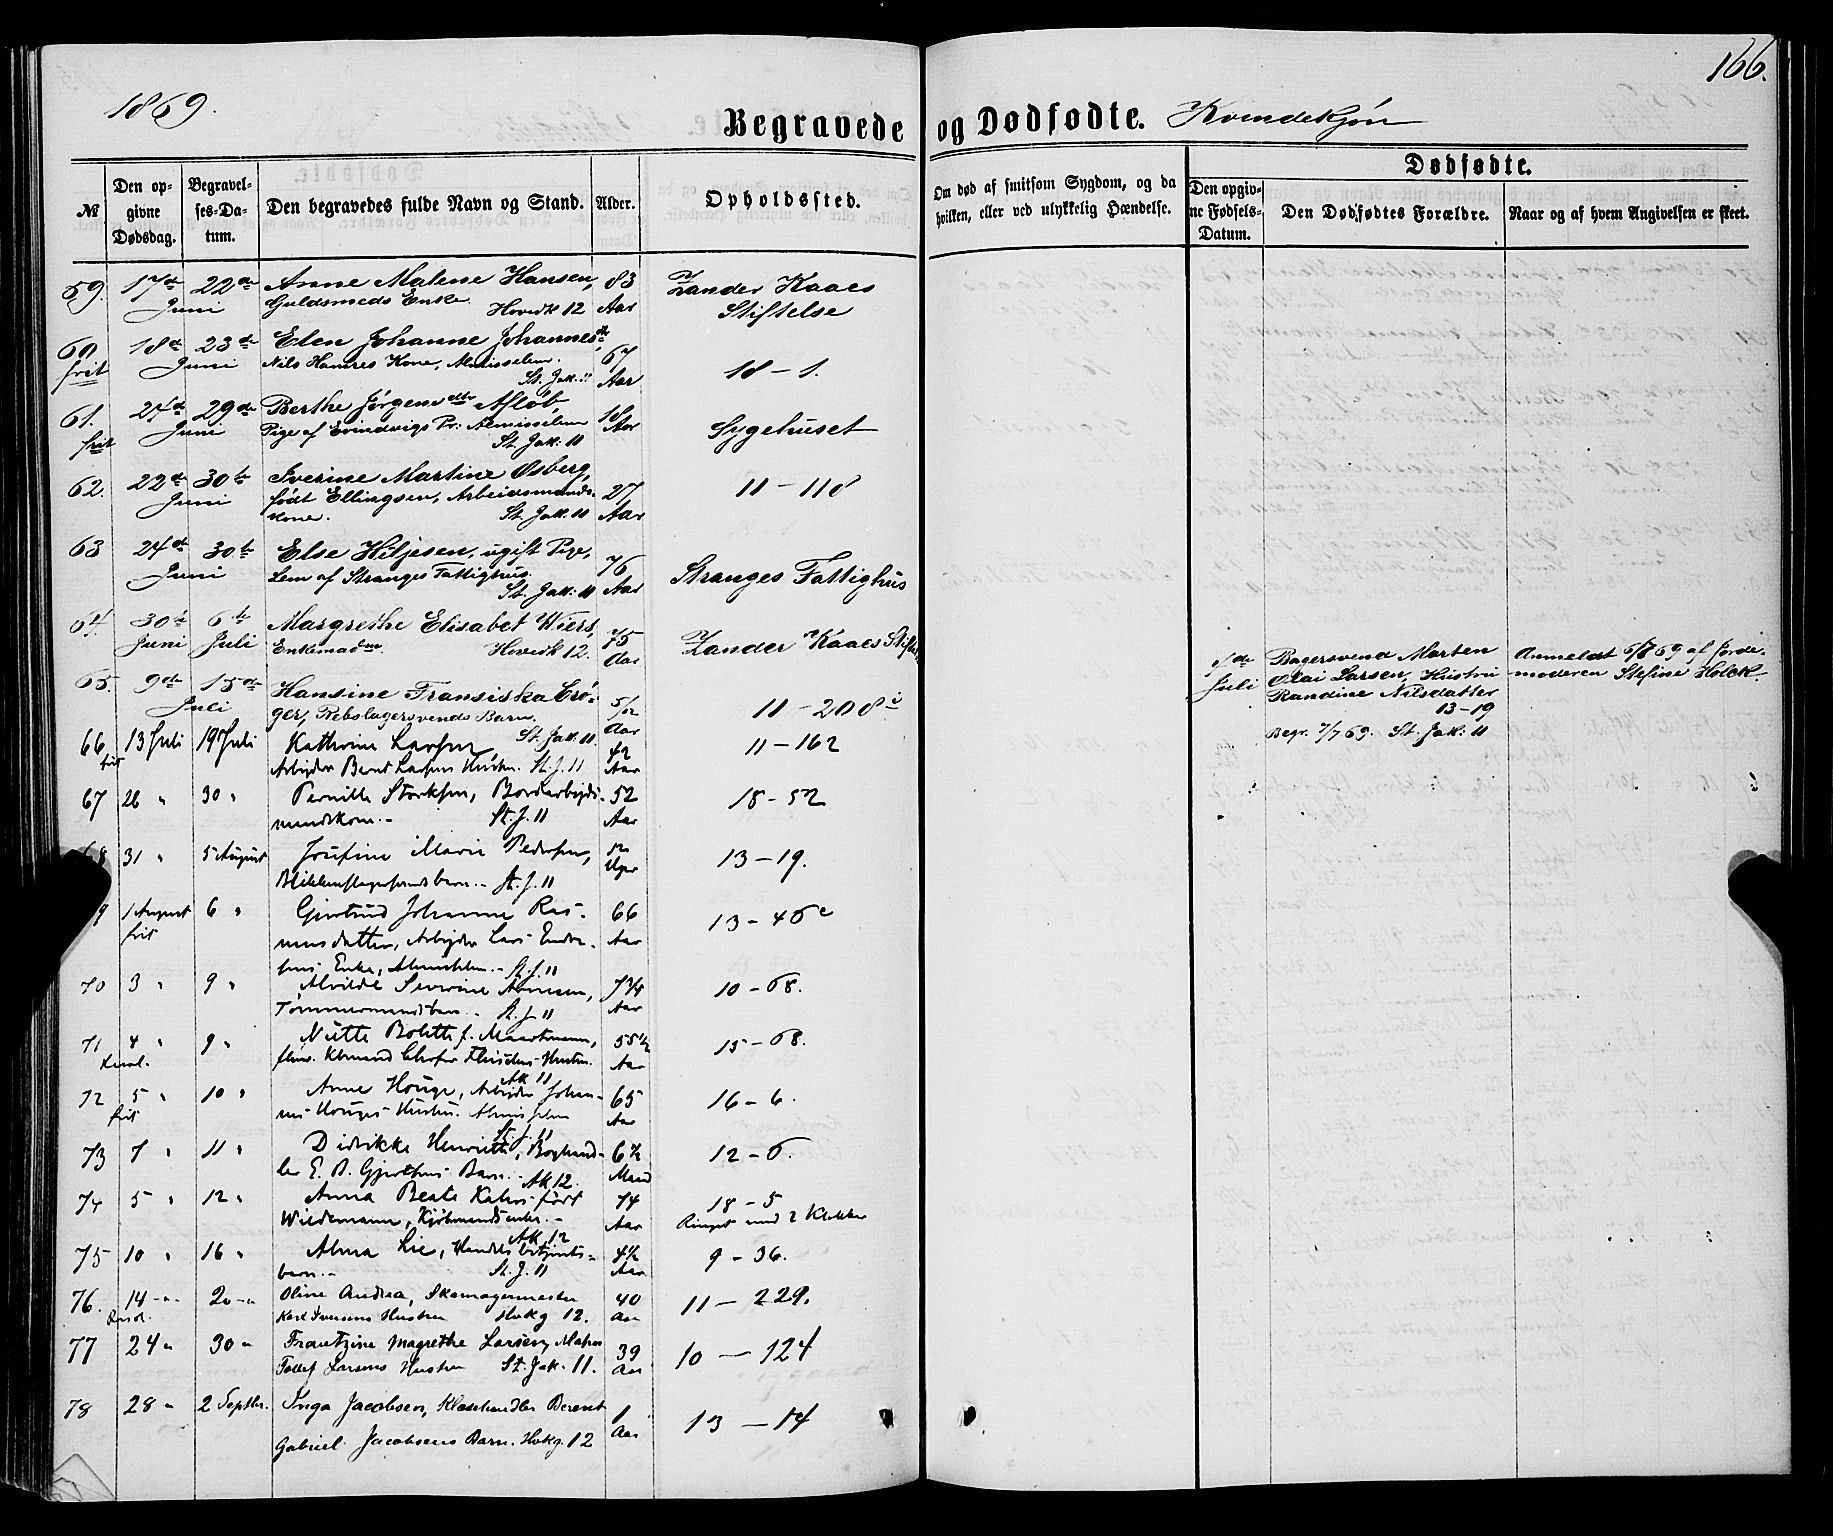 166.
1869.
Begravede og Dødfødte. Kvindekjøn
№ Den opgivne Dødsdag. Begravelses-Datum. Den begravedes fulde Navn og Stand. Alder. Opholdssted. Om død af smitsom Sygdom, og da hvilken, eller ved ulykkelig Hændelse. Dødfødte. Den opgivne Fødsels-Datum. Den Dødfødtes Forældre. Naar og af hvem Angivelsen er skeet.
59. 17de Juni 22de Anne Malene Hansen, 83 Aar Zander Kaaes
Guldsmeds Enke Hovedk 12 Stiftelse
60 18de Juni 23de Elen Johanne Johannesdr, 67 Aar 18 – 1.
frit Nils Hamres Kone, Almisselem. St. Jak. 11
61. 24de Juni 29de Berthe Jørgensdtr Afløb, 18 Aar Sygehuset
frit Pige af Evindvigs Pr: Almisselem St. Jak: 11
62. 22de Juni 30te Iverine Martine Osberg, 27 Aar 11 – 118
født Ellingsen, Arbeidsmands-
kone. St. Jak. 11
63 24de Juni 30te Else Hiljesen, ugift Pige, 76 Aar Stranges Fattighus
Lem af Stranges Fattighus. St. Jak: 11
64. 30te Juni 6te Juli Margrethe Elisabet Wiers, 75 Aar Zander Kaaes Stiftelse
Enkemadm Hovedk 12.
65. 9de Juli 15de Hansine Fransiska Crø- 5/12 Aar 11 – 208 i
ger, Rebslagersvends Barn. St. Jak: 11.
5de Juli Bagersvend Morten Anmeldt 6/7 69 af Jorde-
Olai Larsen, Hustru moderen Stefine Holck.
Randine Nilsdatter
13–19
Begr. 7/7 69. St. Jak: 11
66. 13 Juli 19 Juli Kathrine Larsen 42 Aar 11 – 162
frit Arbeider Bernt Larsens Hustru. St. J. 11
67 26 " 30 " Pernille Storksen, Bordarbeids- 52 Aar 18 – 52
mandskone. – St. J. 11
68 31 " 5 August Josefine Marie Pedersen, 12 Uger 13 – 19.
Blikkenslagersvendsbarn. – St. J. 11
69 1 August 6 " Gjertrud Johanne Ras- 66 Aar 13 – 46 c
frit musdatter, Arbeider Lars Endre-
sens Enke, Almisselem. – St. J. 11
70 3 " 9 " Alvilde Severine Arnesen, 7 3/4 Aar 10 – 68.
Tømmermandsbarn. – St. J. 11
71 4 " 9 " Bolette f. Maartmann, 55 1/2 Aar 15 – 68.
Hustru. Ak 11
72 5 " 10 " Anne Houge, Arbeider Johan- 65 Aar 16 – 6.
frit nes Houges Hustru. Almisselem St. J. 11
73 7 " 11 " Didrikke Henriette, Boghand- 6 1/2 Maaned 12 – 6.
ler E. B. Gjertsens Barn. – Ak 12.
74 5 " 12 " Anna Beate Kahrs født 74 Aar 18 – 5
Wiedemann, Kjøbmandsenke. – Ak 12 Ringet med 2 Klokker
75 10 " 16 " Alma Lie, Handelsbetjents- 4 1/2 Aar 9 – 36.
barn. – St. J. 11
76. 14 – " 20 – " Oline Andrea, Skomagermester 40 Aar 11 – 229.
Karl Iversens Hustru Hvkg 12.
77 24 " 30 " Frantzine Magrethe Larsen, 39 Aar 10 – 124
Tollef Larsens Hustru St. Jak. 11.
78 28 " 2 Septbr. Inga Jacobsen, Klæshandler Berent 1 Aar 13 – 14
Gabriel Jacobsens Barn. Hvkg. 12